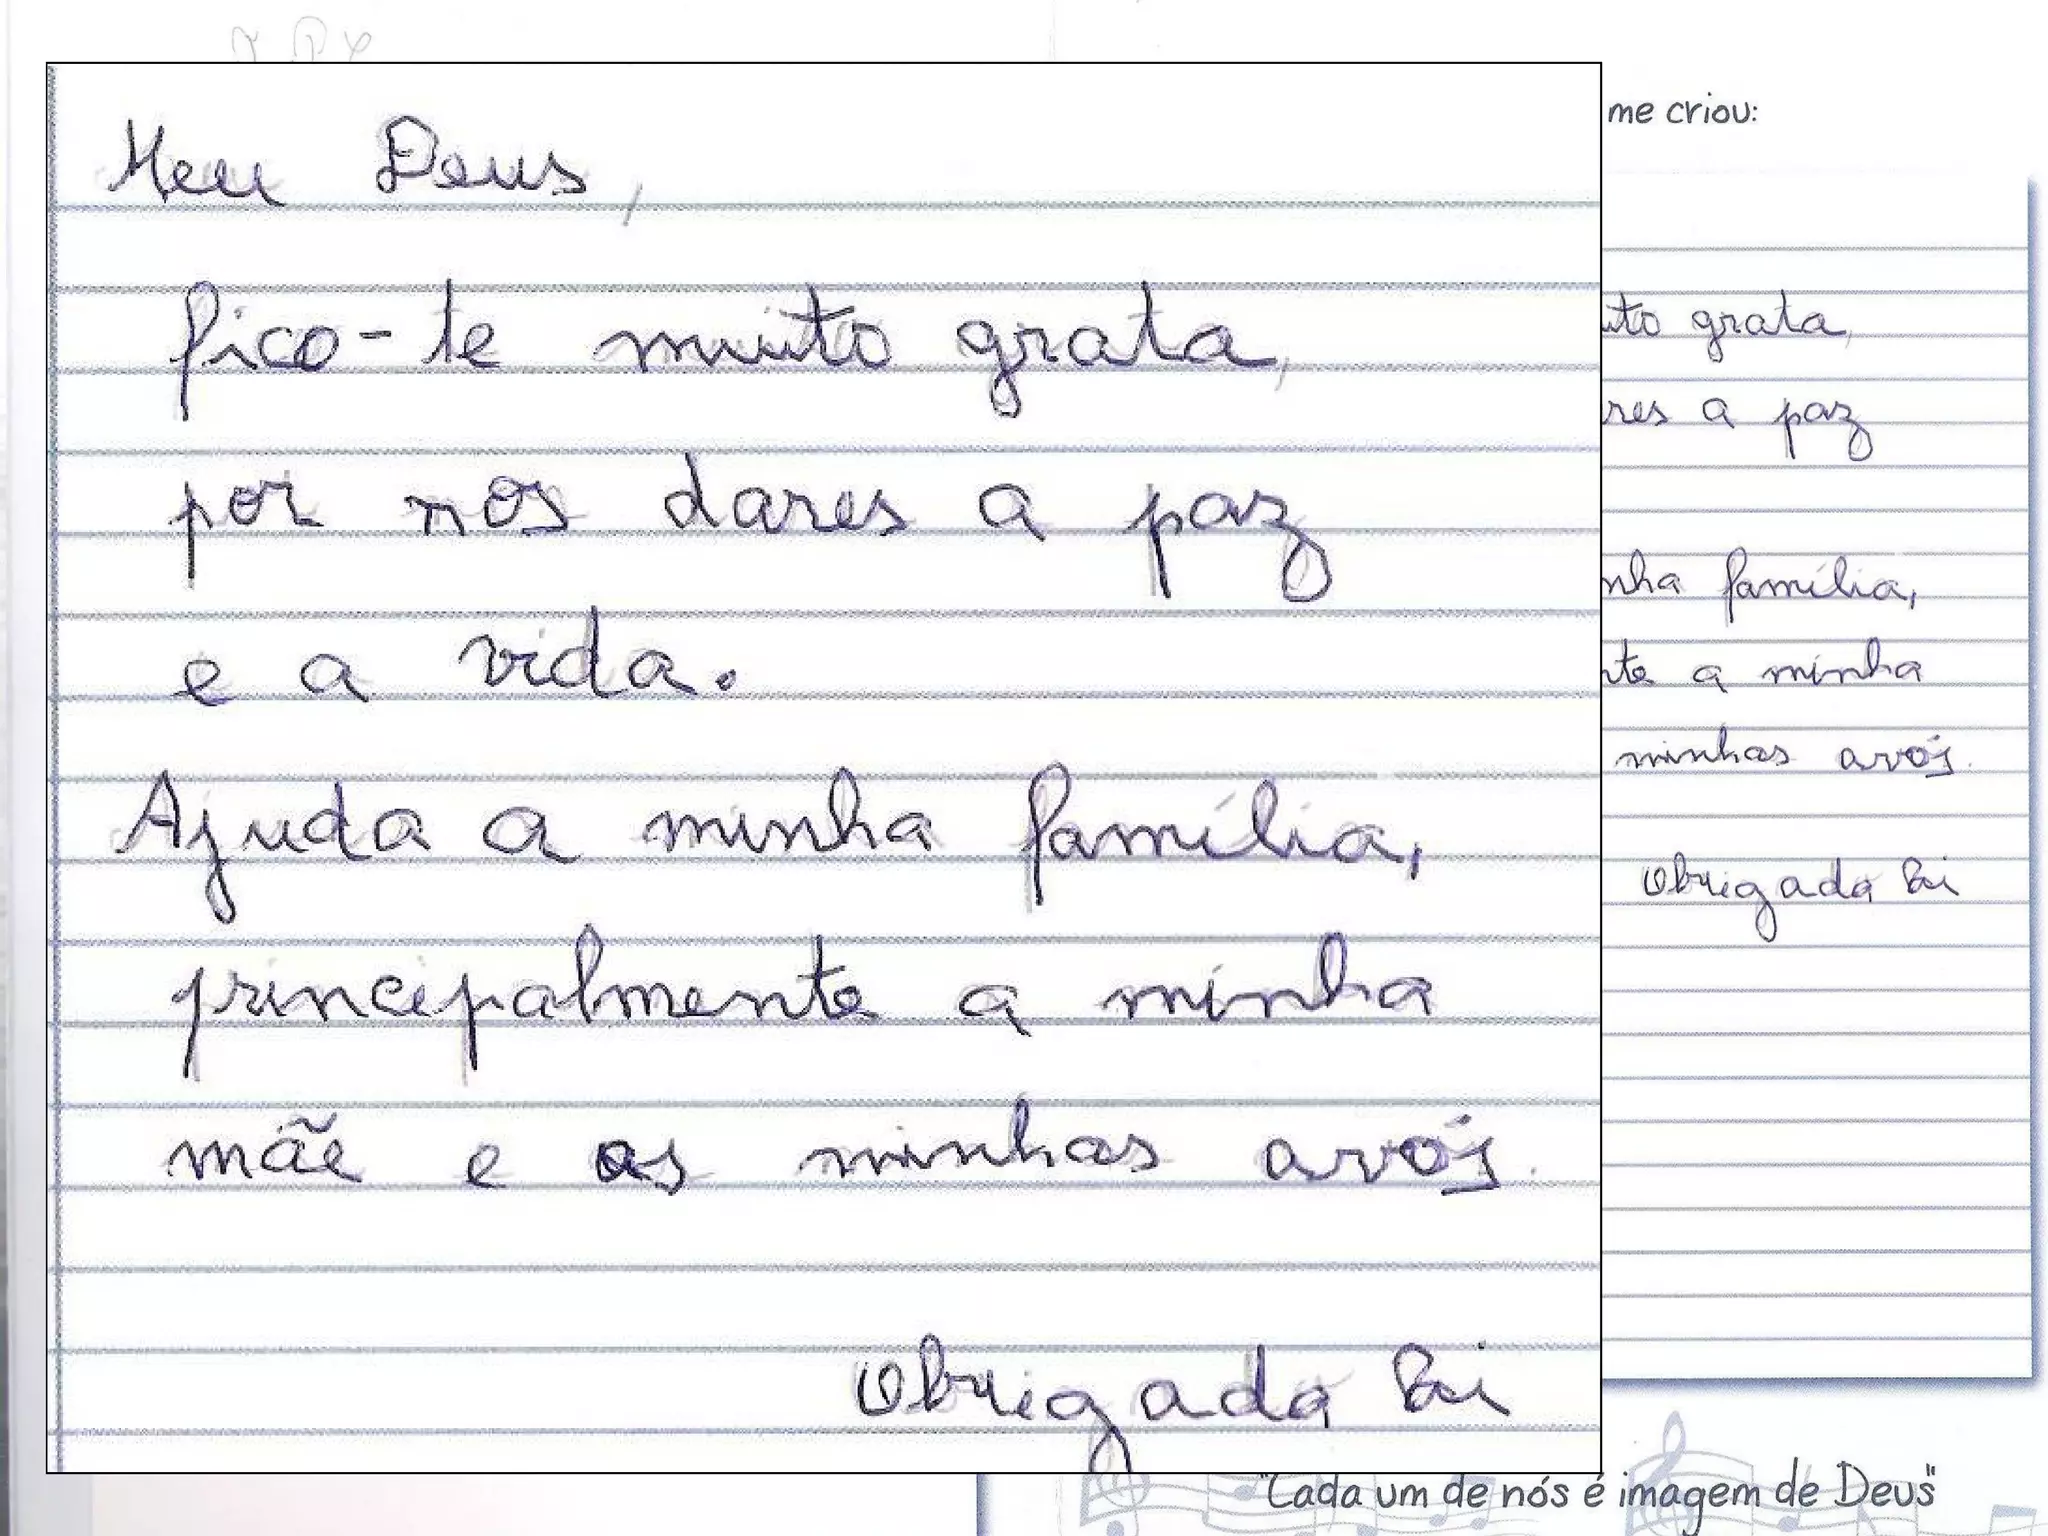 Meu Deus,
fico-te muito grata,
por nos dares a paz
e a vida.
Ajuda a minha família,
principalmente a minha
mãe e as minhas avós.
Obrigada
me criou:
uto grata,
res a paz
nha família,
nte a minha
minhas avós.
Obrigada
"Cada um de nós é imagem de Deus"